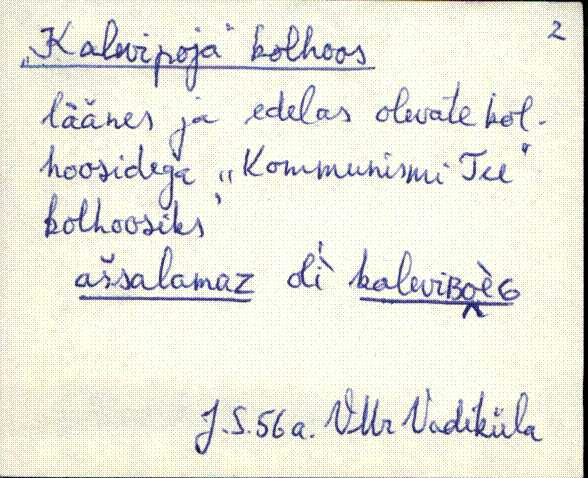 2
„Kalevipoja“ kolhoos
läänes ja edelas olevate kol-
hoosidega „Kommunismi Tee“
kolhoosiks
aššalamaz dì kaleviʙoèɢ
J.S. 56 a. VMr Vadiküla